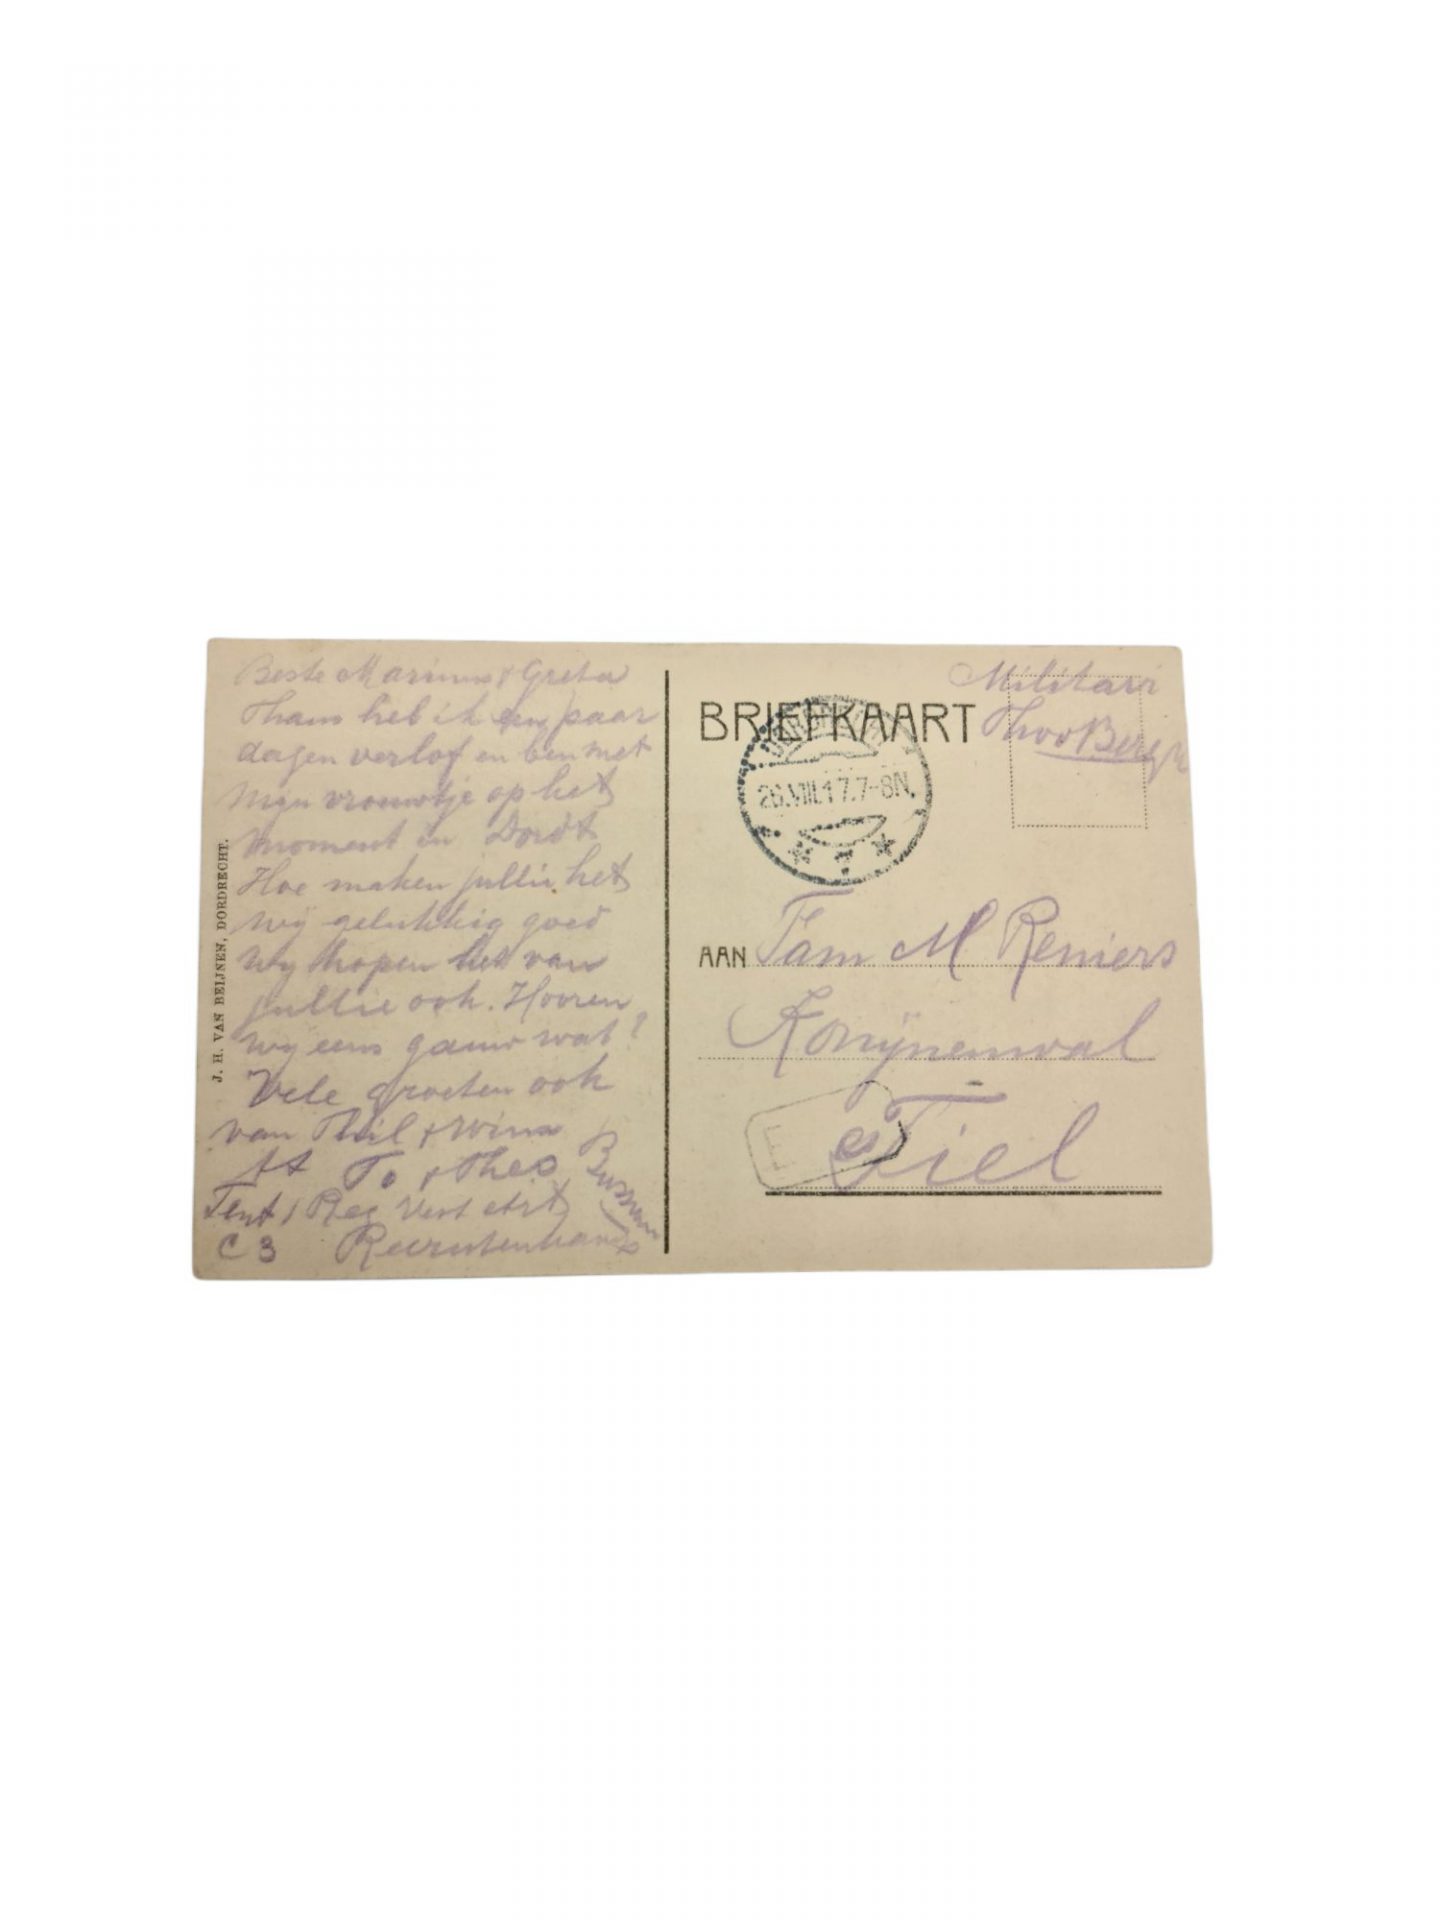 Beste Marinus & Greta
Thans heb ik een paar
dagen verlof en ben met
mijn vrouwtje op het
moment in Dordt
Hoe maken jullie het
wij gelukkig goed
wy hopen het van
jullie ook. Hooren
wij eens gauw wat?
Vele groeten ook
van Phil & Wim
tt To & Theo
Tent 1 Reg Vest Art
C 3 Recrutenkamp
Bussum
J. H. VAN BEIJNEN, DORDRECHT.
Militair
BRIEFKAART
DORDRECHT
26.VIII.17.7-8N.
1
AAN Fam M Reniers
Konijnenwal
Tiel
E